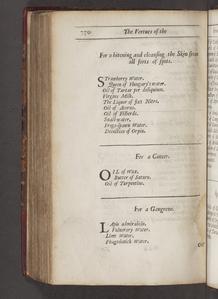 The Vertues of the
For whitening and cleansing the Skin from
all sorts of spots.
Strawberry Water.
Queen of Hungary's water.
Oil of Tartar per deliquium.
Virgins Milk.
The Liquor of fixt Nitre.
Oil of Acorns.
Oil of Filberds.
Snail-water.
Frogs-spawn Water.
Decoction of Orpin.
For a Cancer.
OIL of Wax.
Butter of Saturn.
Oil of Turpentine.
For a Gangrene.
Lapis admirabilis.
Vulnerary Water.
Lime Water.
Phagedenick Water.
Oil